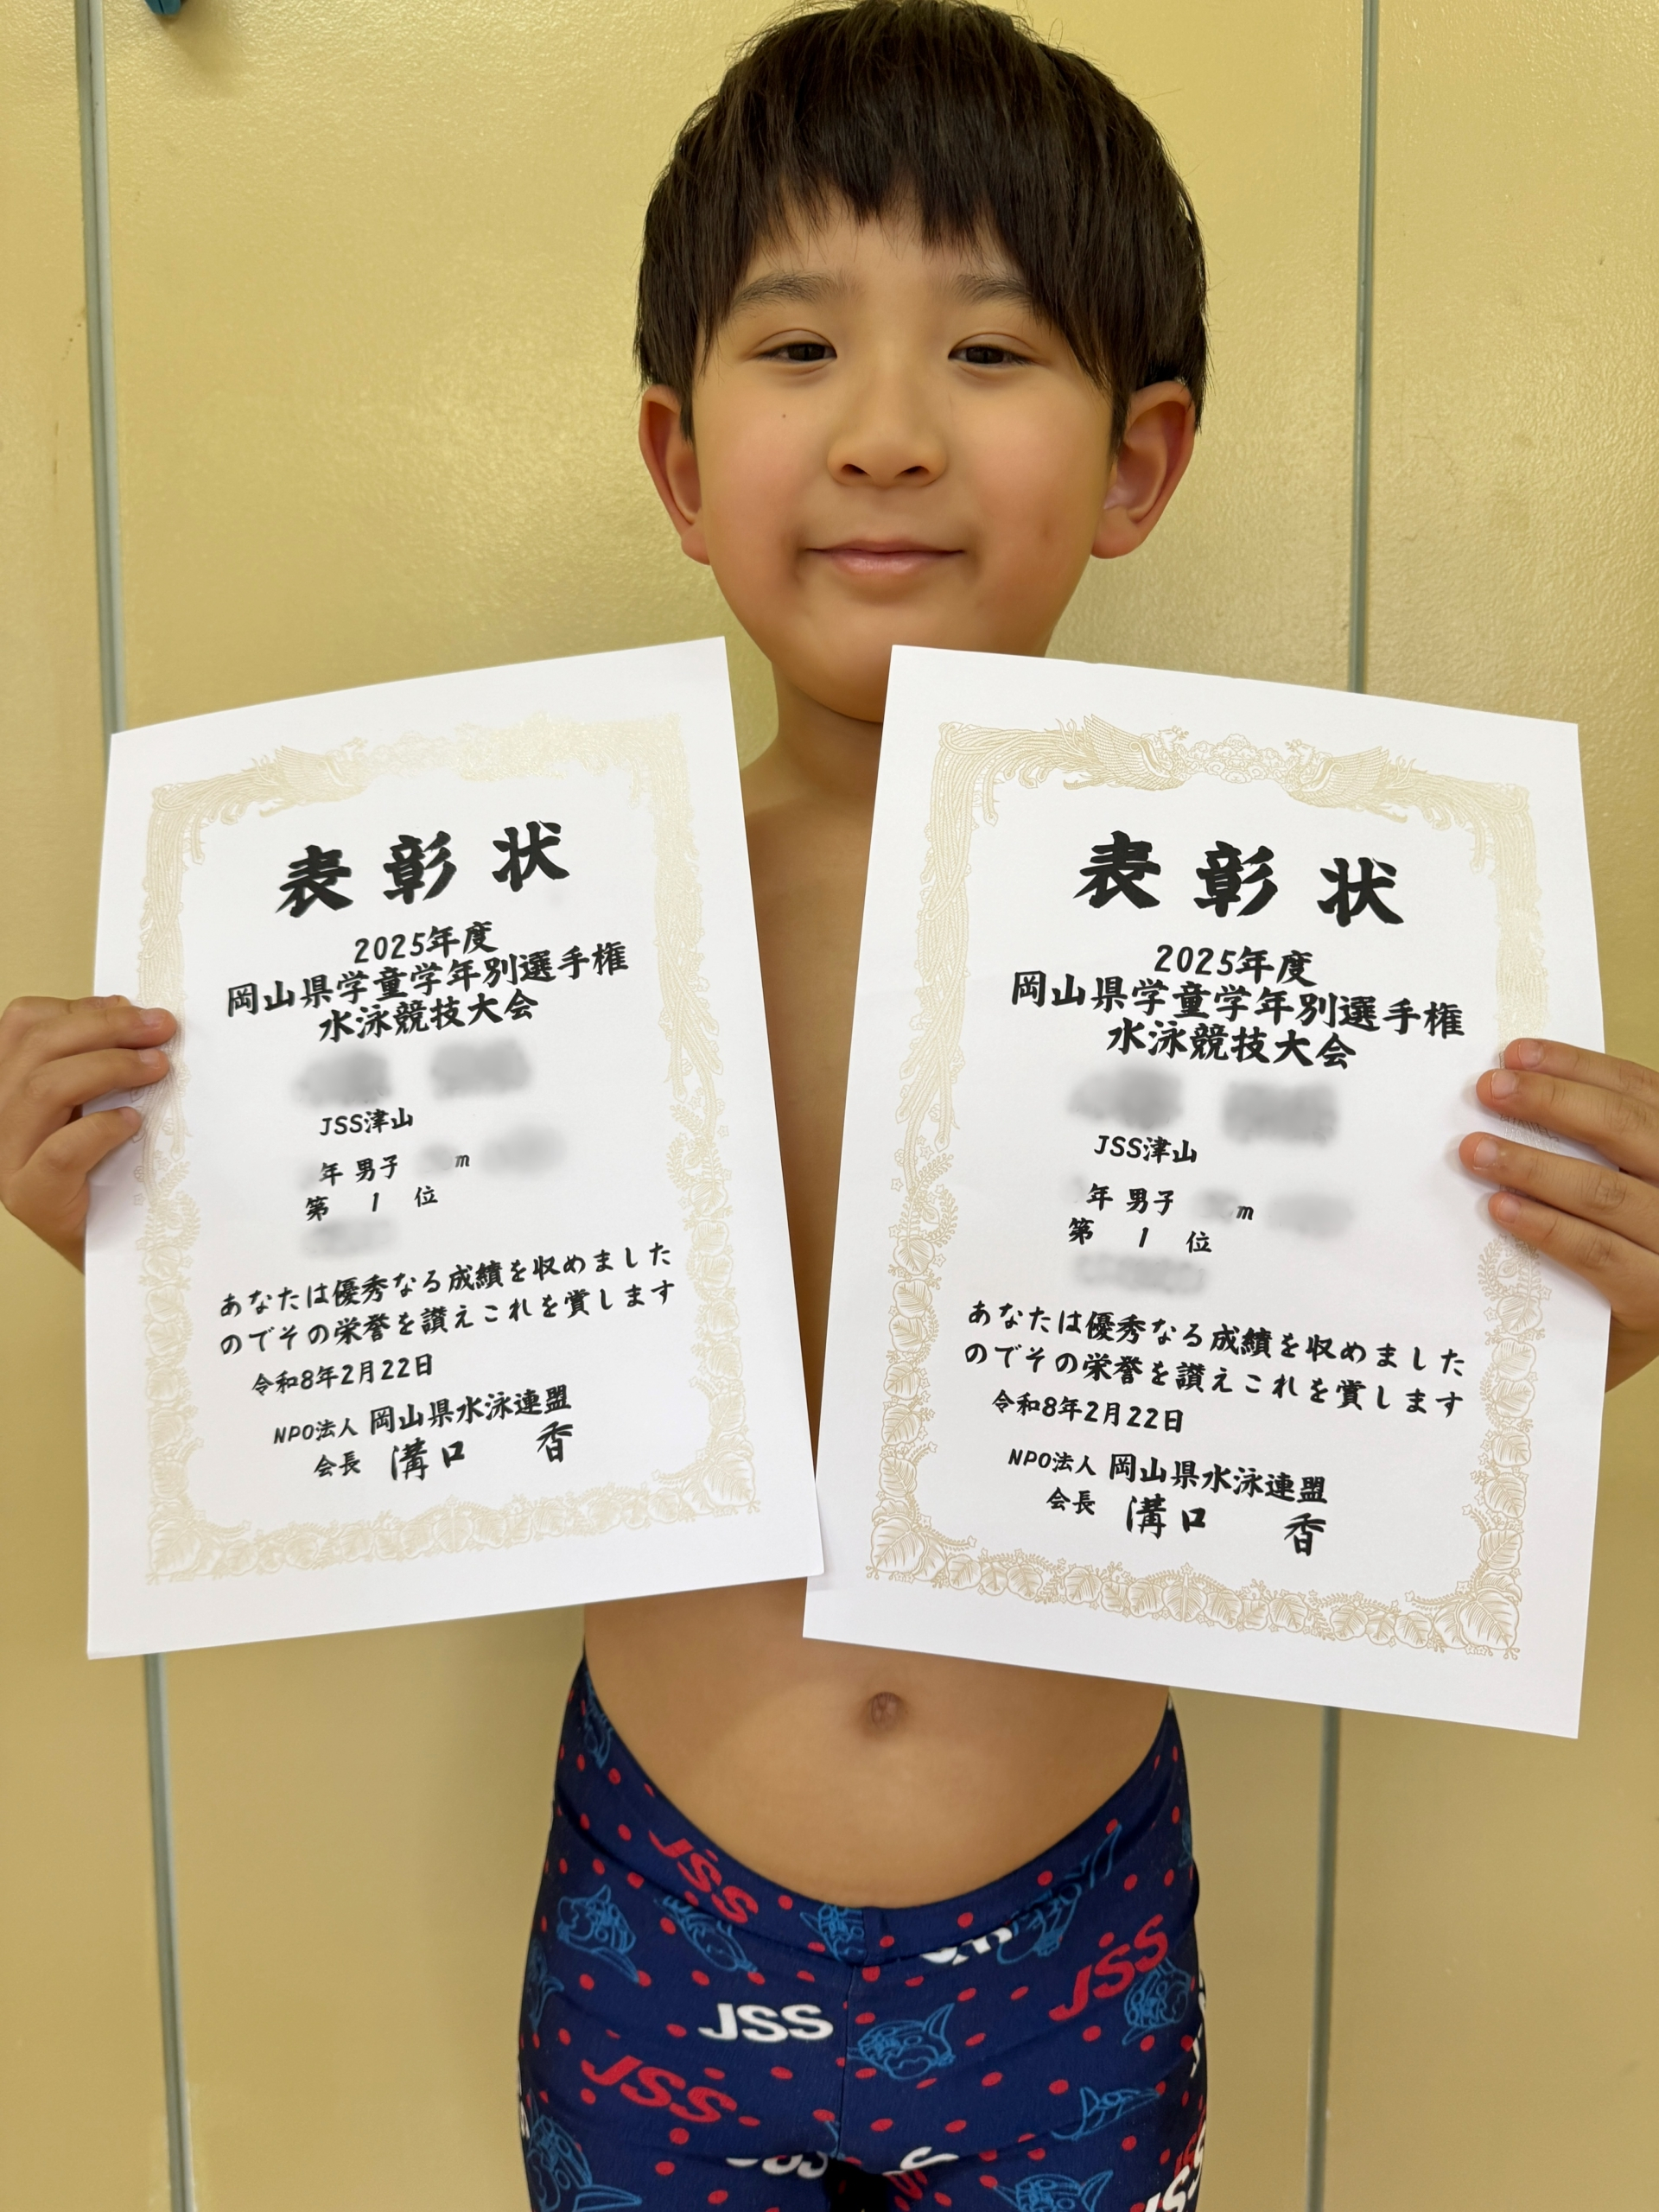 表彰状
2025年度
岡山県学童学年別選手権
水泳競技大会
JSS津山
年 男子 m
第 1 位
あなたは優秀なる成績を収めました
のでその栄誉を讃えこれを賞します
令和8年2月22日
NPO法人 岡山県水泳連盟
会長 溝口 香
表彰状
2025年度
岡山県学童学年別選手権
水泳競技大会
JSS津山
年 男子 m
第 1 位
あなたは優秀なる成績を収めました
のでその栄誉を讃えこれを賞します
令和8年2月22日
NPO法人 岡山県水泳連盟
会長 溝口 香
JSS
JSS
JSS
JSS